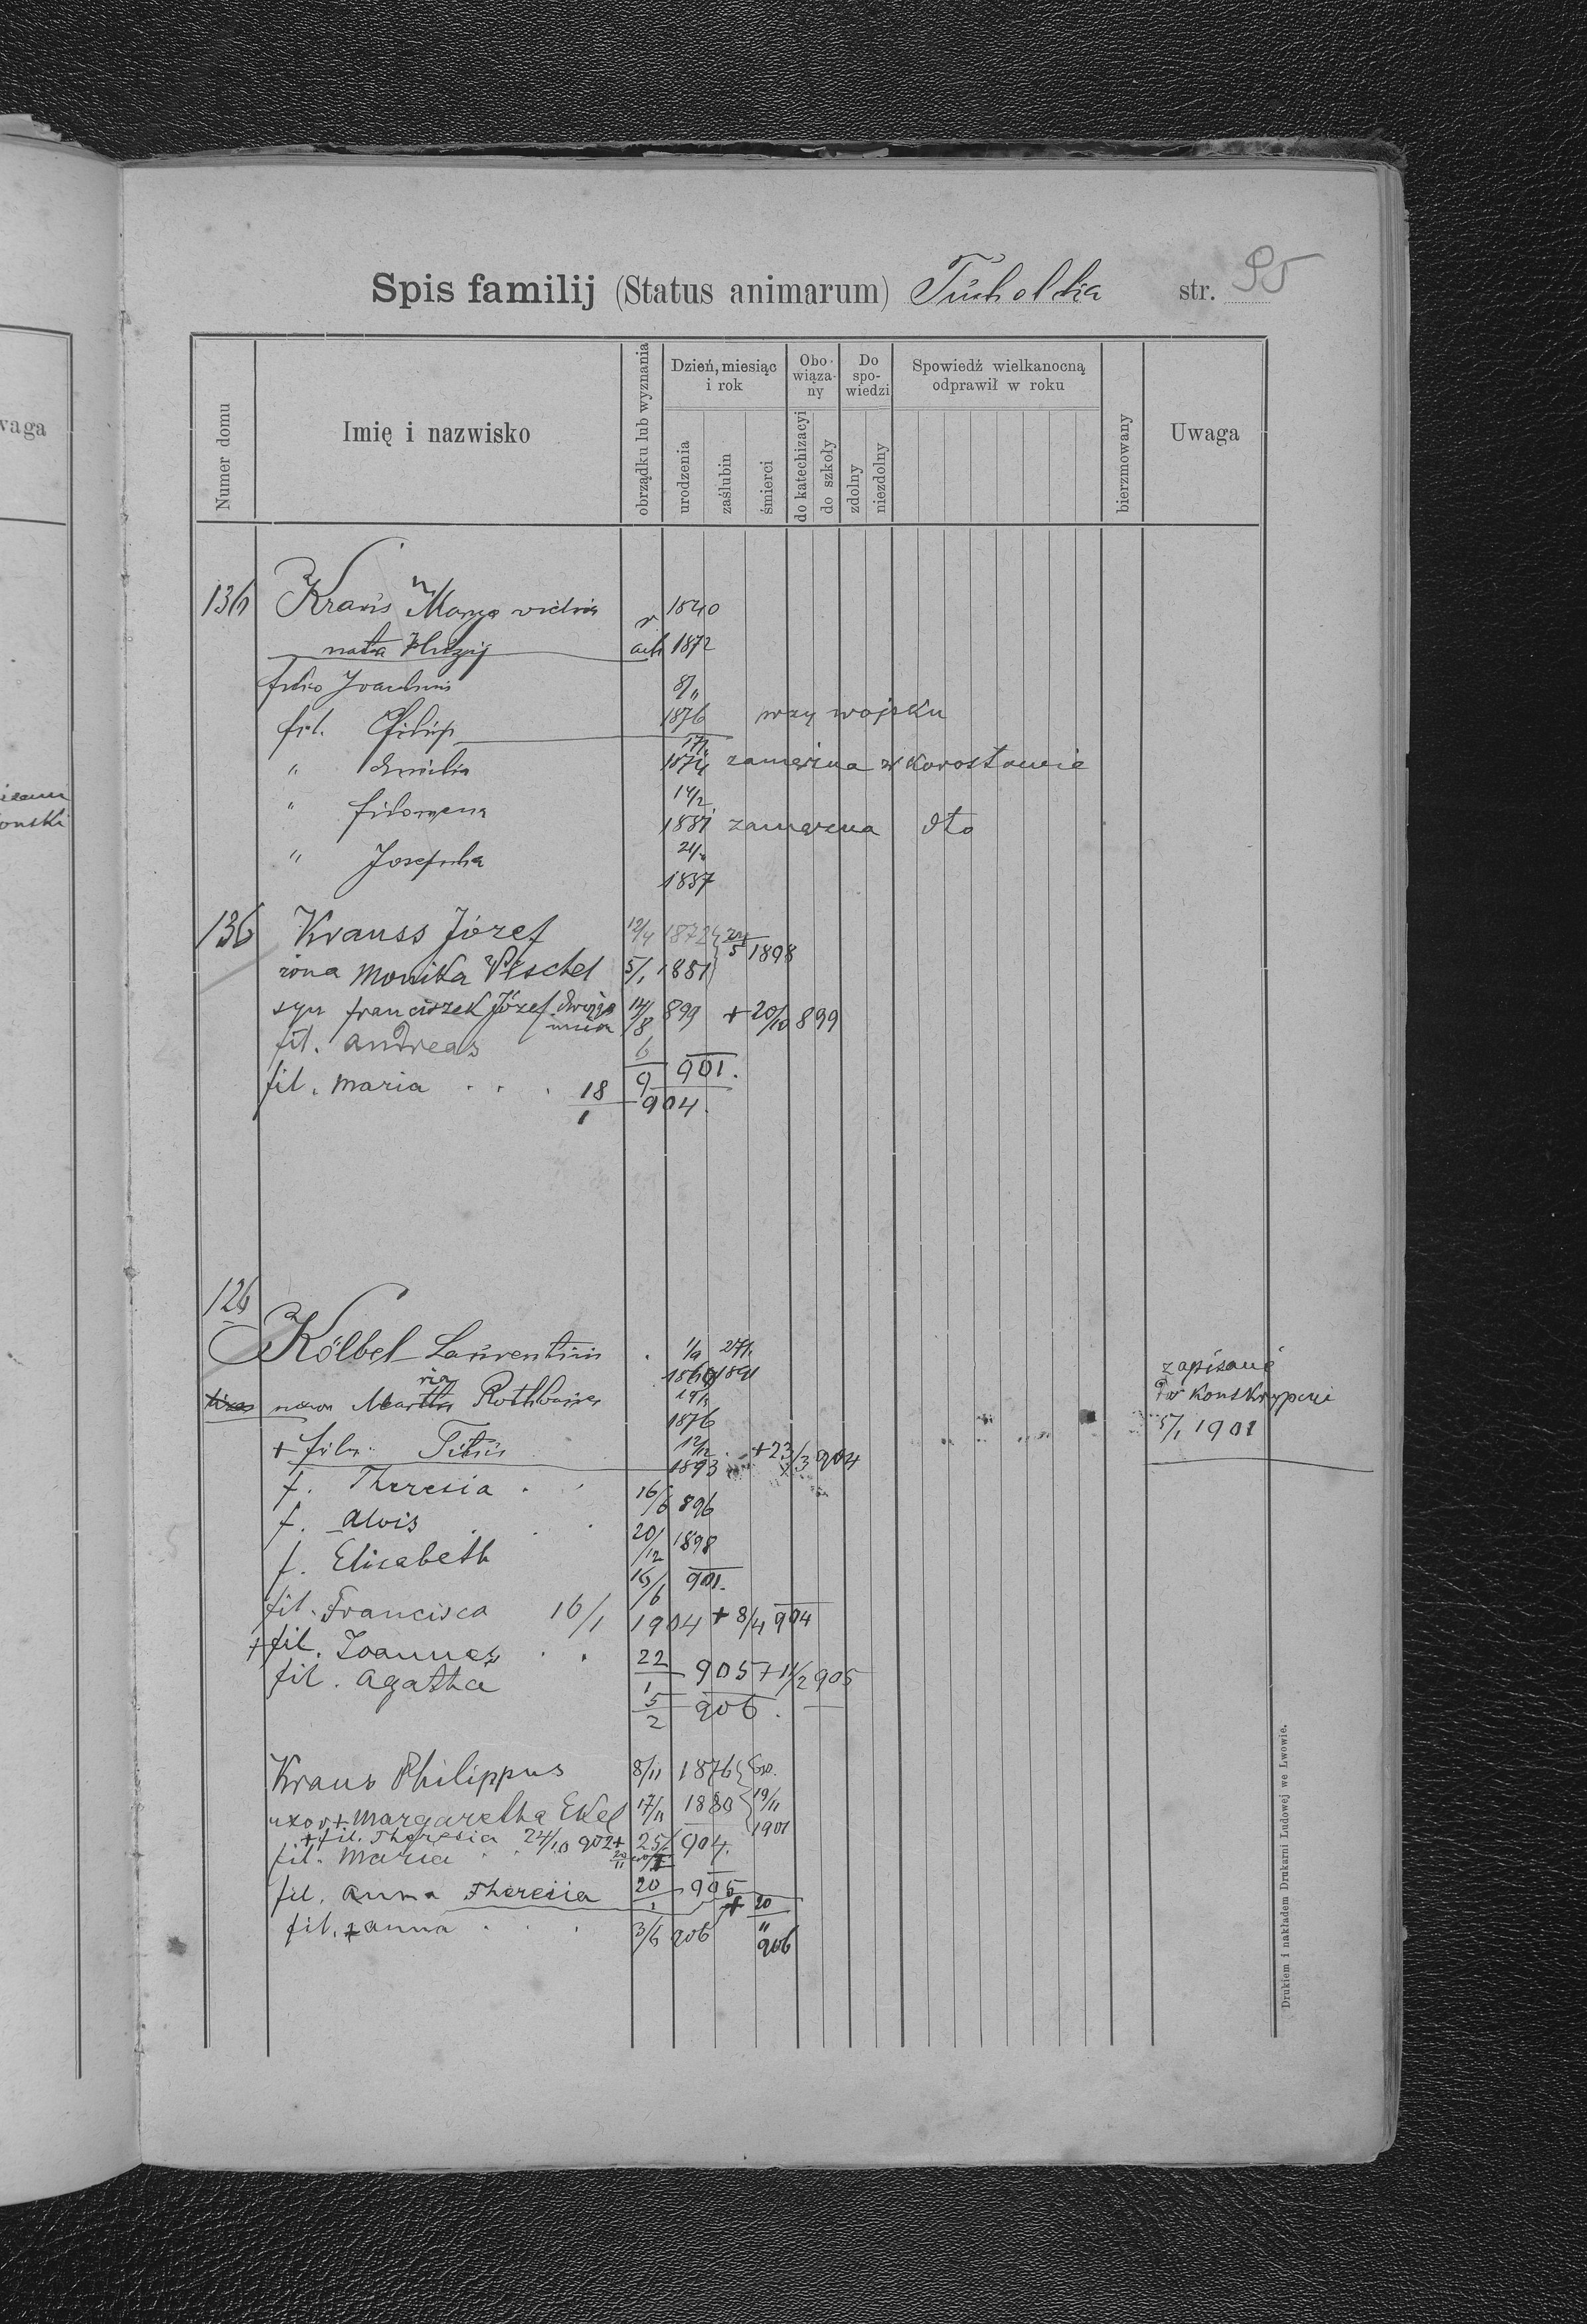 Spis familij (Status animarum) Tucholka str. 95
Numer domu
Imię i nazwisko
obrządku lub wyznania
Dzień, miesiąc i rok
urodzenia
zaślubin
śmierci
Obowiązany
do katechizacyi
do szkoły
Do spowiedzi
zdolny
niezdolny
Spowiedź wielkanocną odprawił w roku
bierzmowany
Uwaga
136 Kraus Marya vidua 1840
nata 1872
filius Joachim 8/11
fil. Filip 1876 przy wojsku
" Emilia 1874 zamężna w Korostowie
14/2
" filomena 1881 zamężna dto
" Josepha
1887
136 Krauss Józef 12/4 1872 24/5 1898
żona Monika Peschel 5/1 1881
syn franciszek Józef dwojga imion 14/8 899 + 20/10 899
fil. Andreas 6/9 901.
fil. Maria . . . 18/1 904.
126
Kölbel Laurentius 1/9 27/1
1869 1891
uxor Maria Rothbauer
1876
+ filn. Titus 12/12 1893 + 23/3 904
f. Theresia . . 16/6 896
f. Alois . . . 20/12 1898
f. Elisabeth 16/6 901.
fil. Francisca 16/1 1904 + 8/4 904
+ fil. Joannes . . 22/1 905 + 11/2 905
fil. Agatha 5/2 906.
zapisane
w Konskrypcyi
5/1 1901
Kraus Philippus 8/11 1876
uxor + Margaretha Ekel 17/11 1880 19/11 1901
+ fil. Theresia 24/10 902 +
fil. Maria . . 25/ 904.
fil. Anna Theresia 20/1 905
fil. + Anna . . . 3/6 906 + 20/11 906
Drukiem i nakładem Drukarni Ludowej we Lwowie.
waga
onski